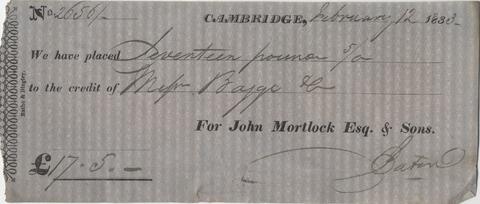 No. 2656/- CAMBRIDGE, February 12 1833-
We have placed Seventeen pounds 5/0
to the credit of Messrs Baggs & Co
For John Mortlock Esq. & Sons.
£17.5.-